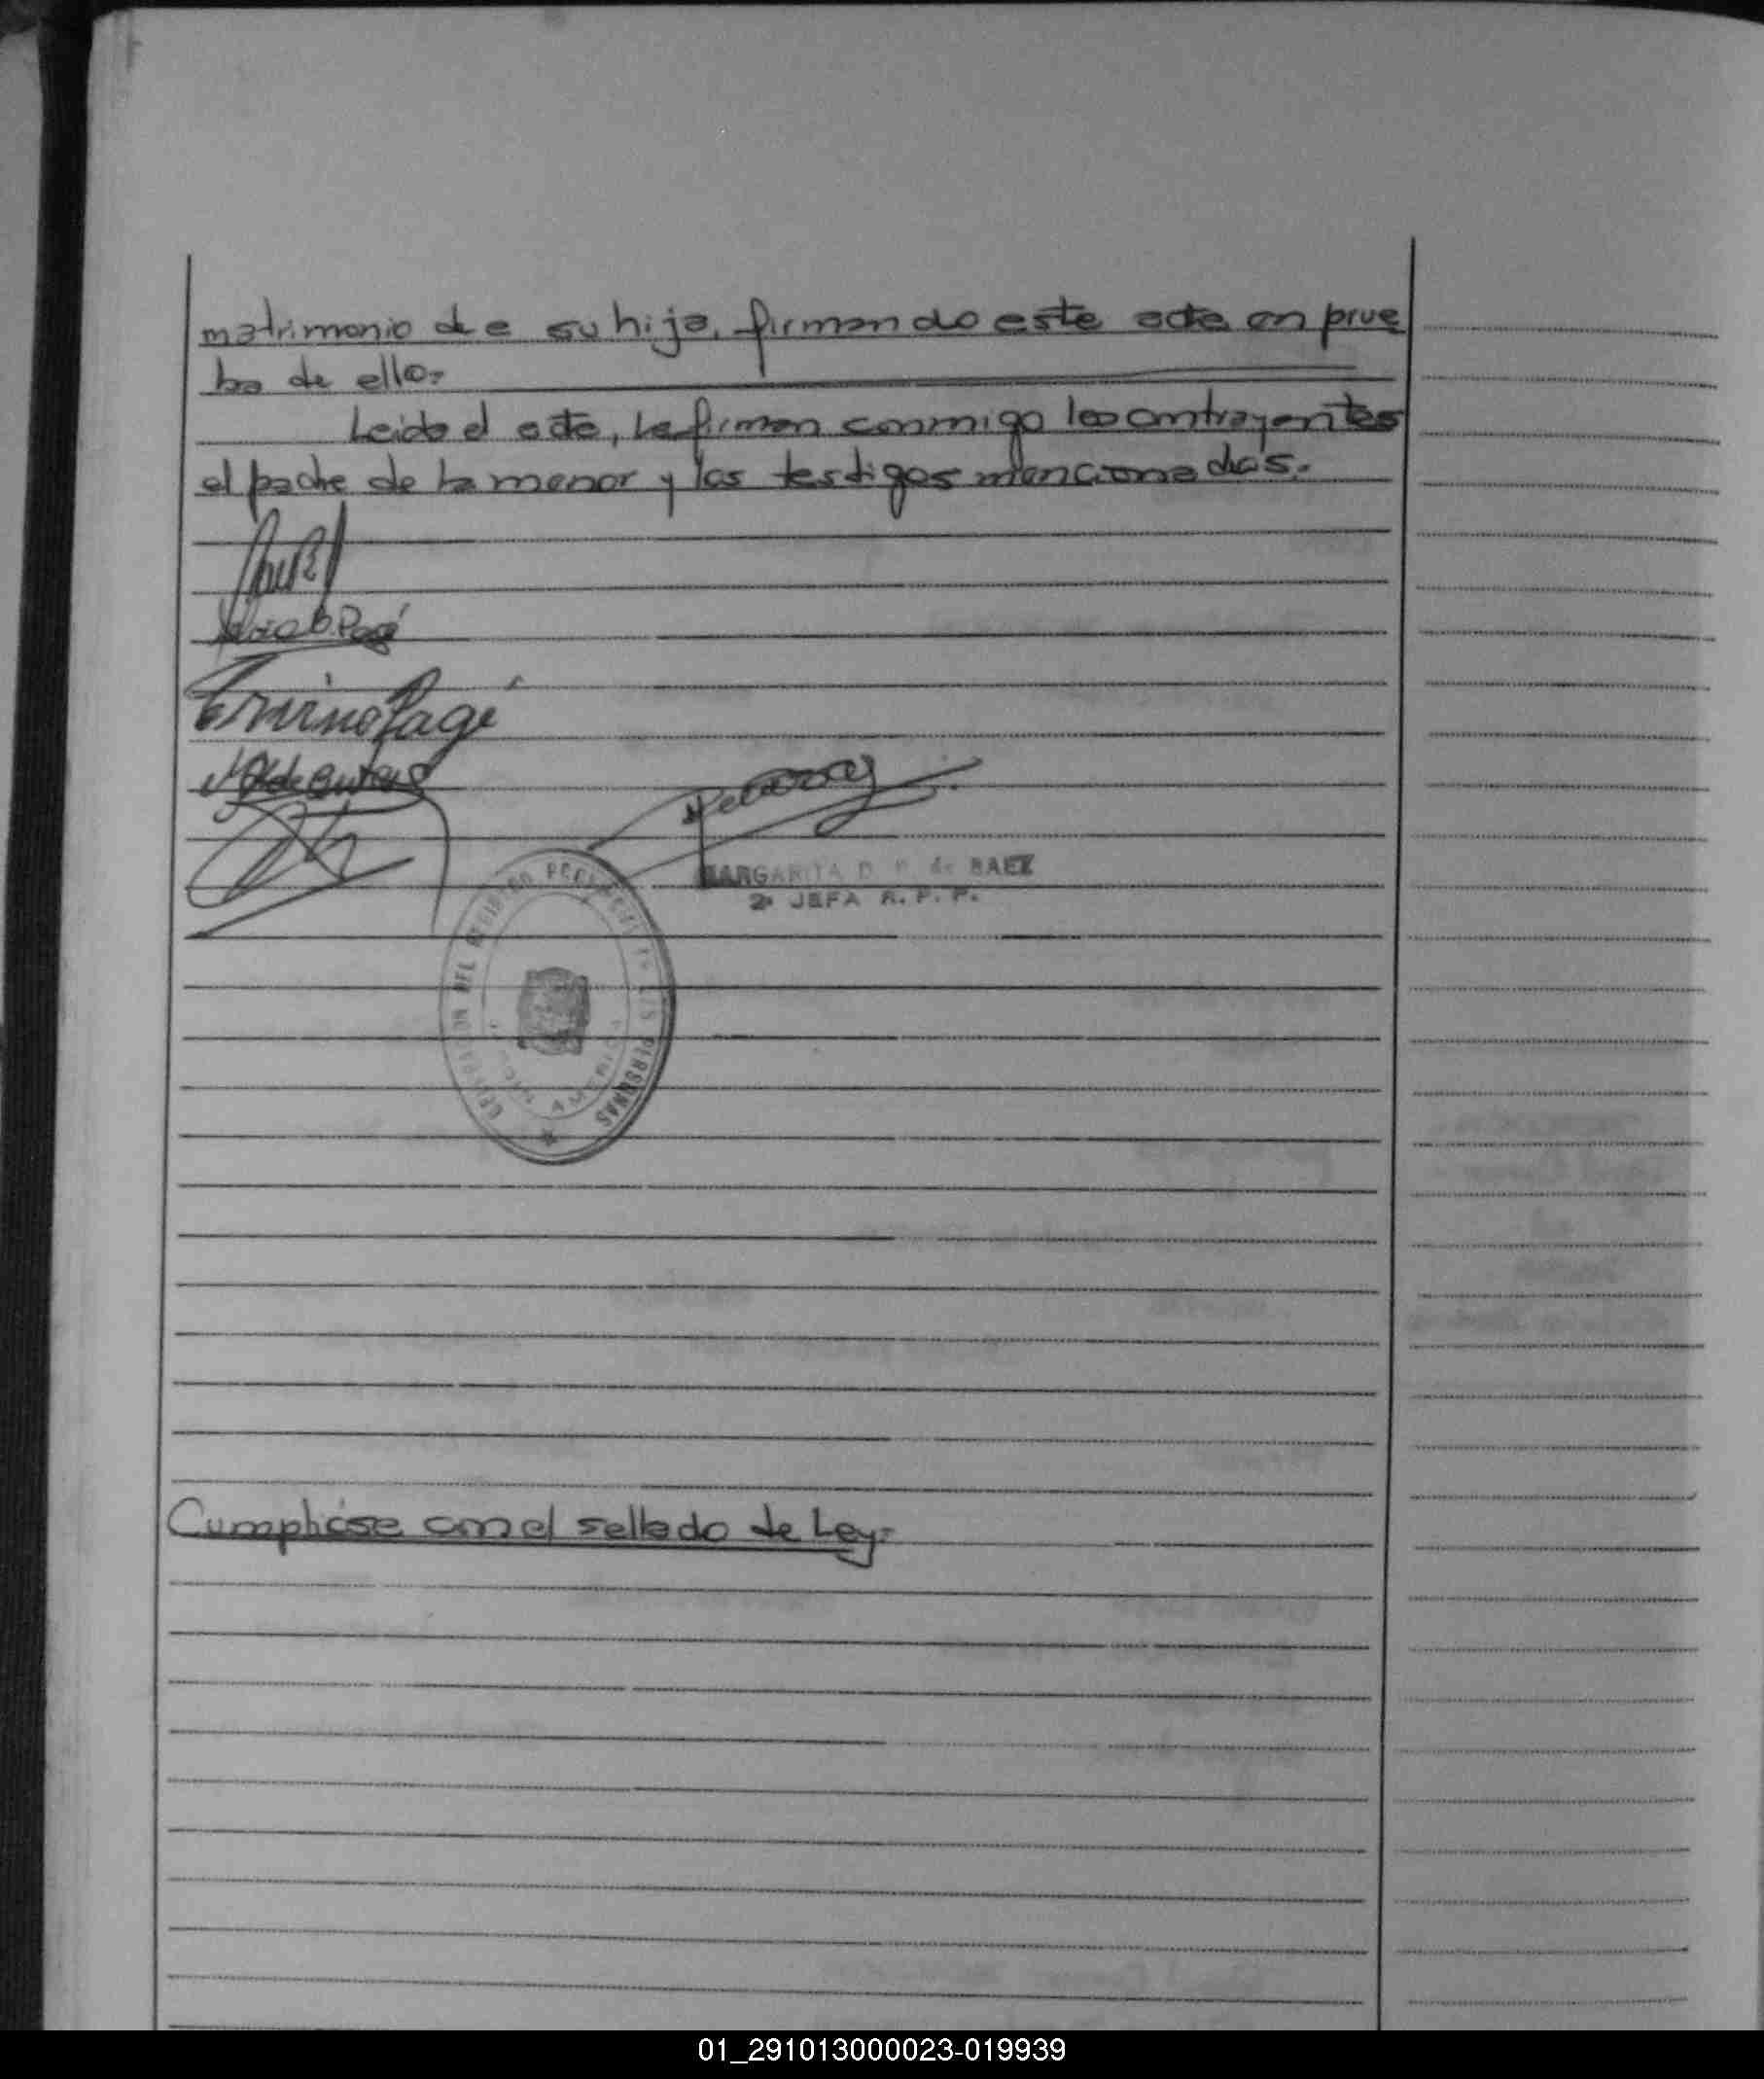 matrimonio de su hija, firmando este acta en prue
ba de ello.
Leida el acta, la firman conmigo los contrayentes
el padre de la menor y los testigos mencionados.
Pagé
Pagé
MARGARITA D. P. de BAEZ
2ª JEFA R. P. P.
DEL REGISTRO PROVINCIAL DE LAS PERSONAS
AMERICA
Cumplióse con el sellado de Ley.
01_291013000023-019939